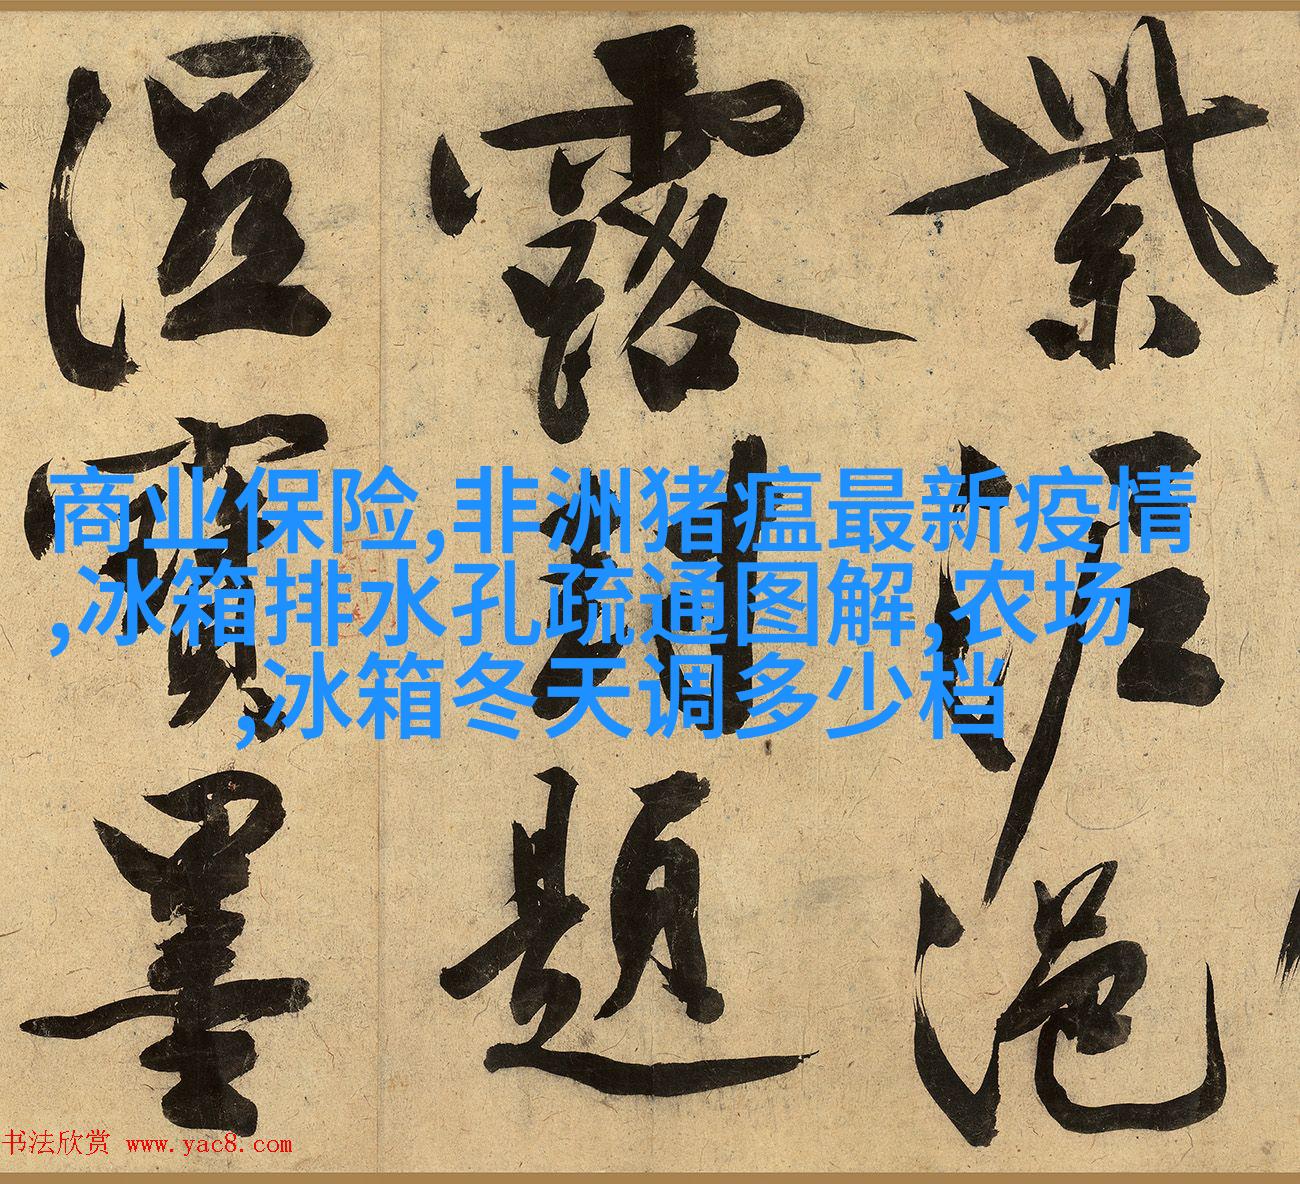 紫泥浥
露封題
濕寶墨
商业保险,非洲猪瘟最新疫情
,冰箱排水孔疏通图解,农场
,冰箱冬天调多少档
书法欣赏 www.yac8.com